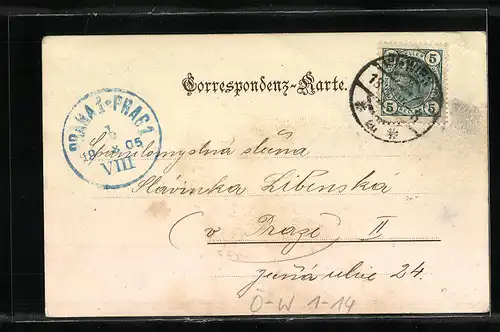 Correspondenz-Karte.
5 5
5 5
PRAHA 1 - PRAG 1
19 05
VIII
slečna
Slávinka Libenská
(v Praze) II
ječná ulice 24.
O-W 1-14